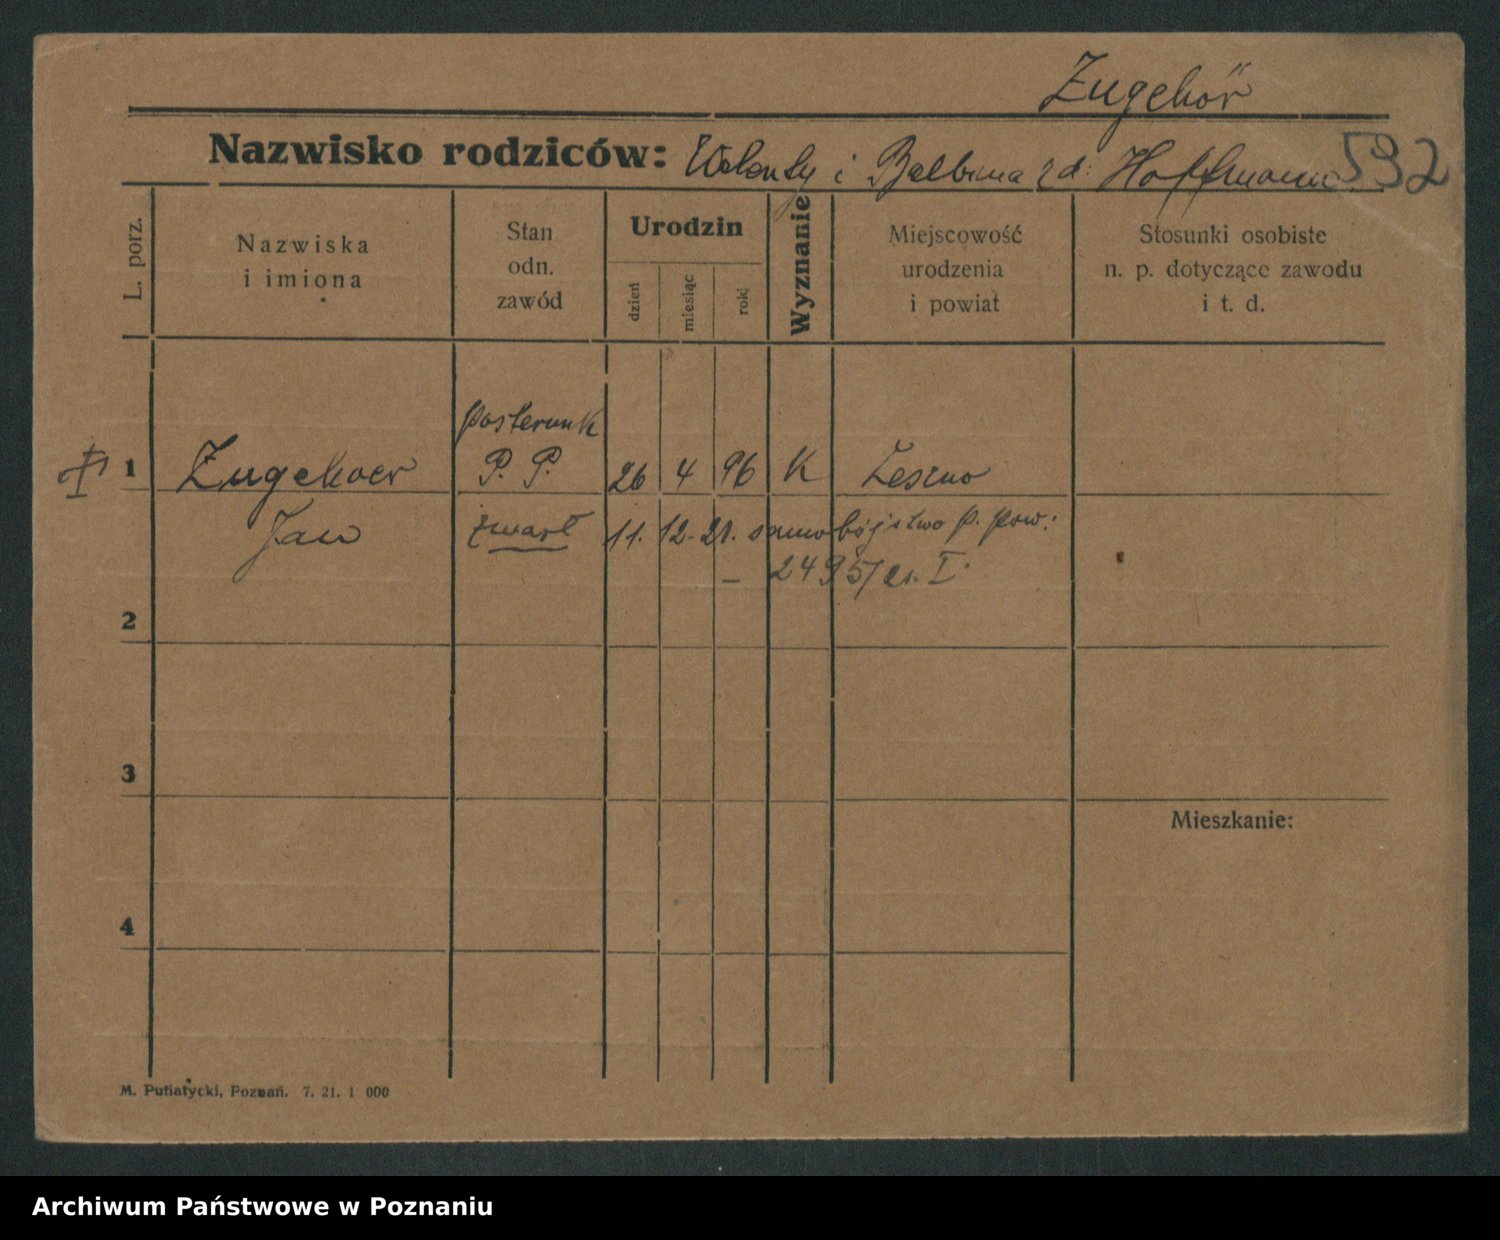 Zugehör
Nazwisko rodziców: Walenty i Balbina z d. Hoffmann 592
L. porz.
Nazwiska
i imiona
Stan
odn.
zawód
Urodzin
dzień
miesiąc
rok
Wyznanie
Miejscowość
urodzenia
i powiat
Stosunki osobiste
n. p. dotyczące zawodu
i t. d.
posterunk
1 Zugehoer P. P. 26 4 96 K Leszno
Jan zmarł 11. 12. 21. samobójstwo p. pow:
– 2495/21. I.
2
3
Mieszkanie:
4
M. Putiatycki, Poznań. 7. 21. 1 000
Archiwum Państwowe w Poznaniu